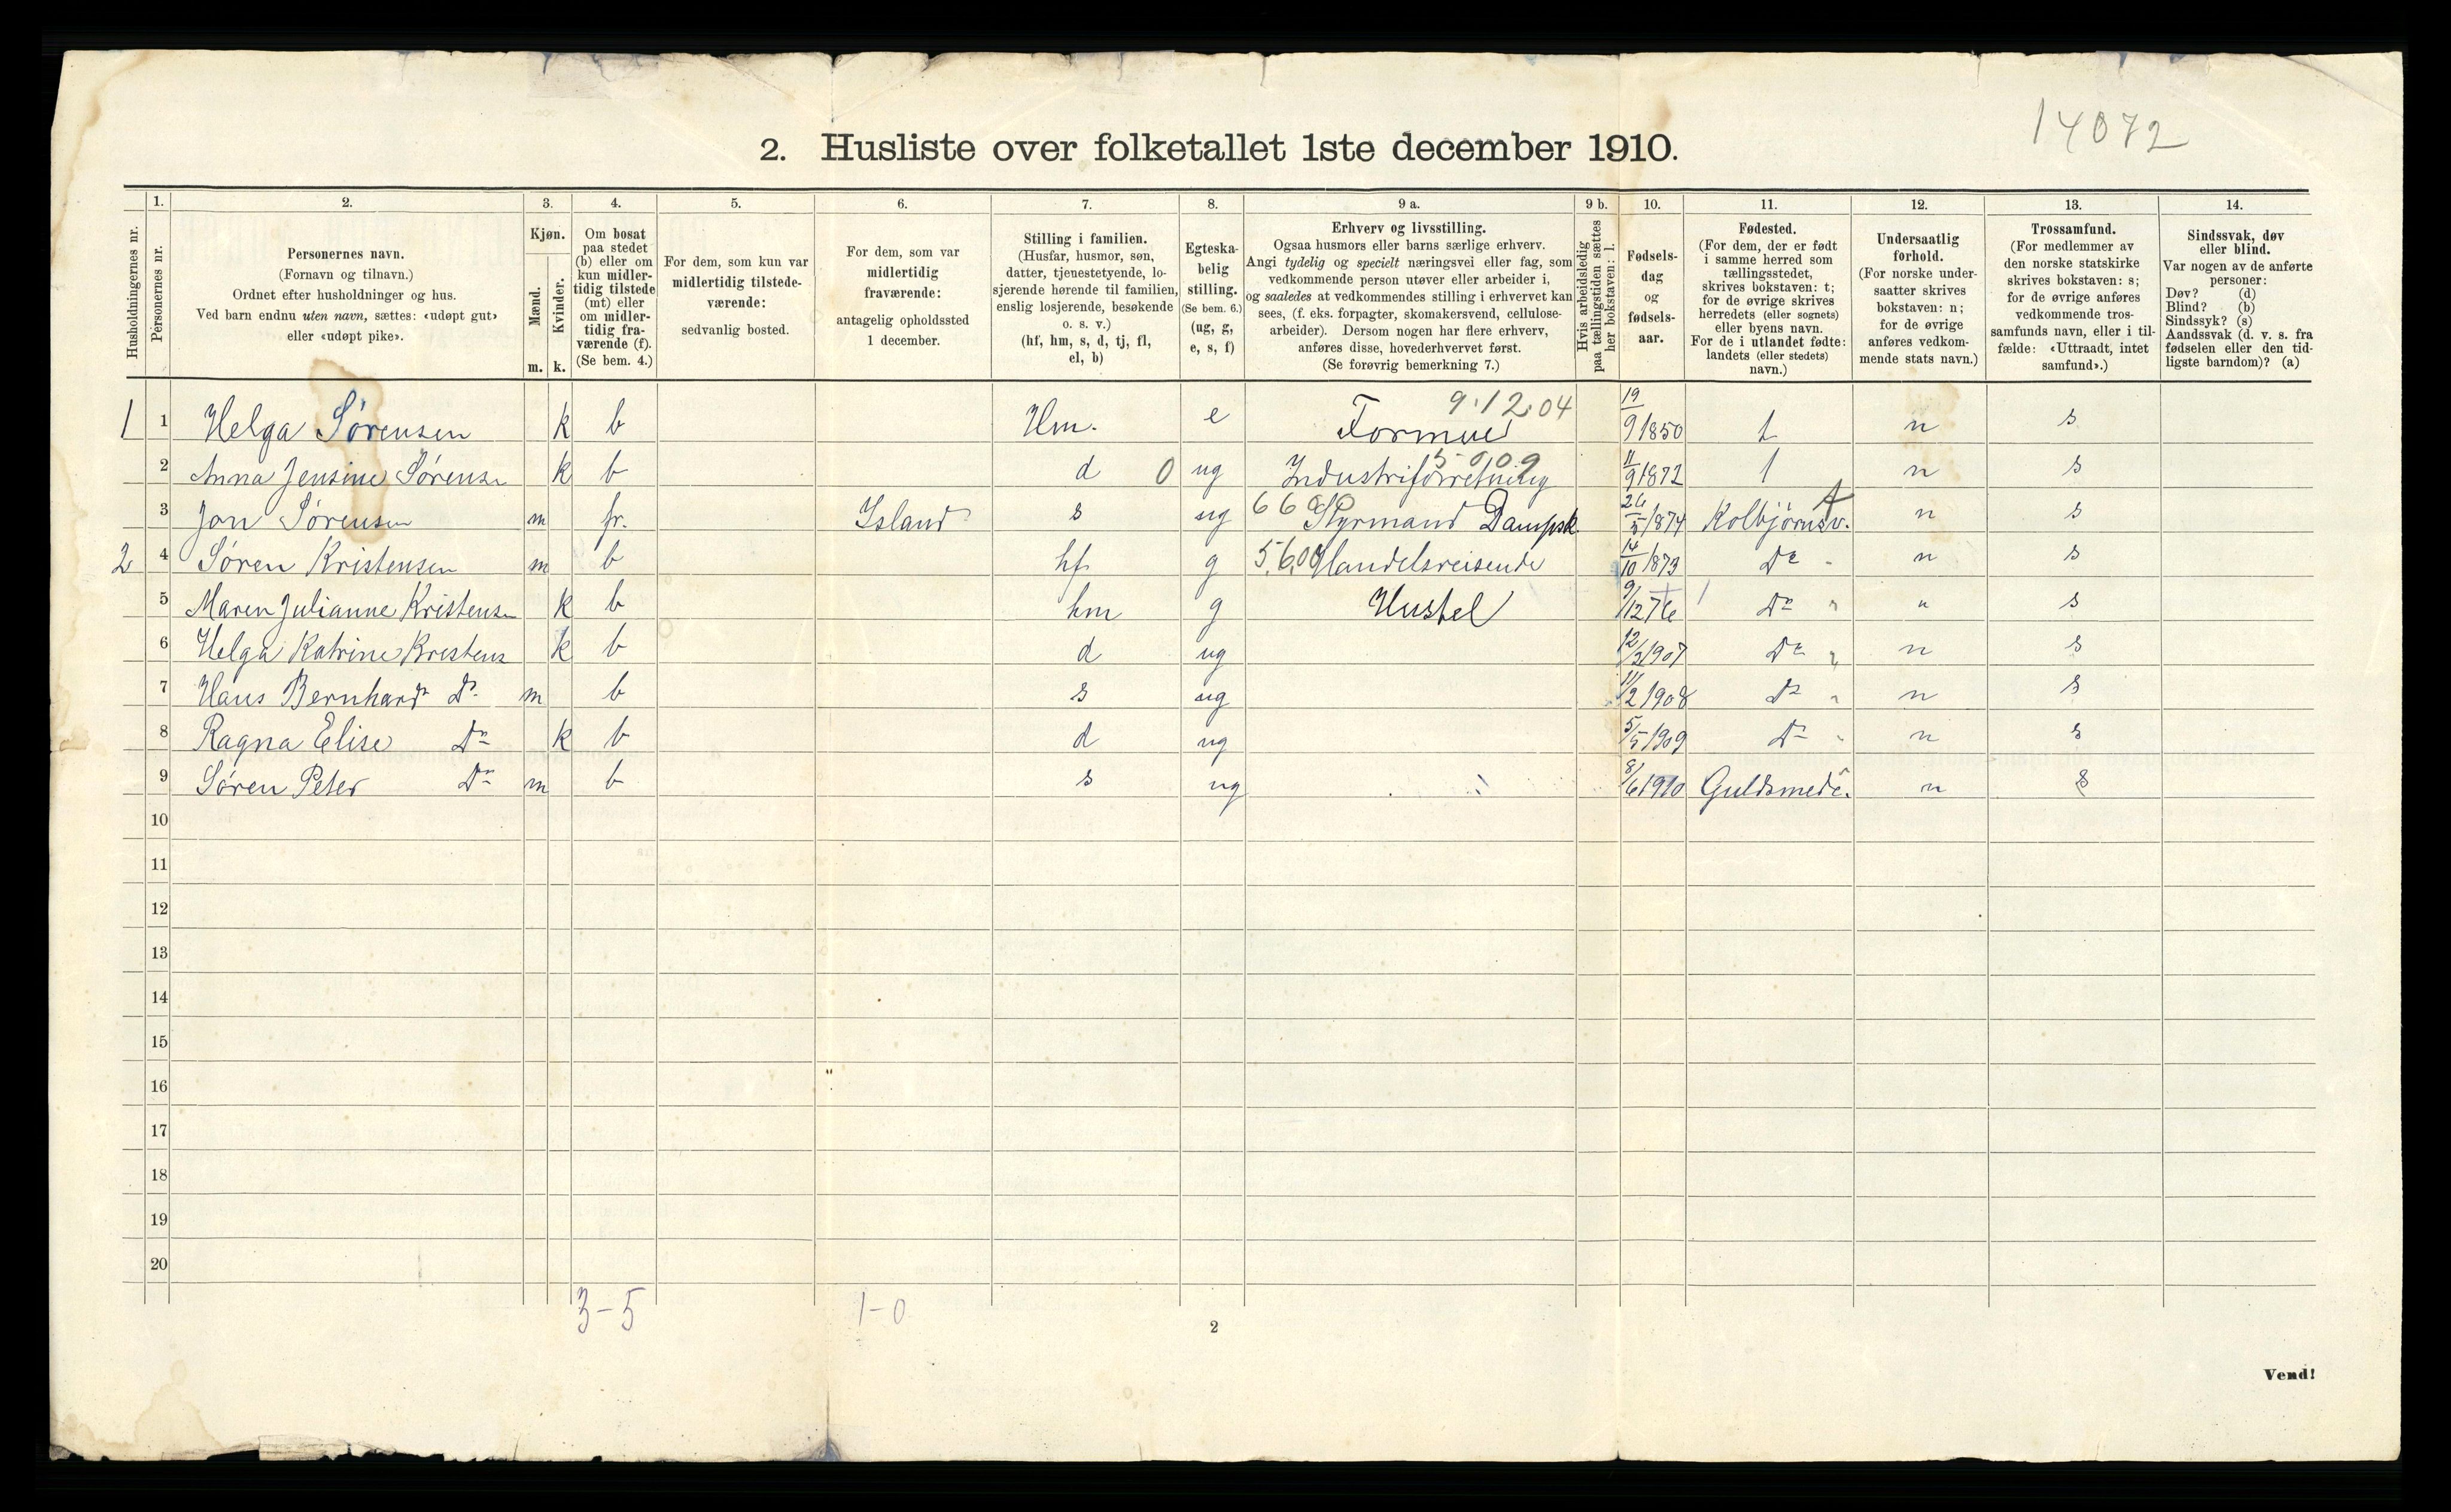 14072
2. Husliste over folketallet 1ste december 1910.
1. 2. 3. 4. 5. 6. 7. 8. 9 a. 9 b. 10. 11. 12. 13. 14.
Husholdningernes nr.
Personernes nr.
Personernes navn.
(Fornavn og tilnavn.)
Ordnet efter husholdninger og hus.
Ved barn endnu uten navn, sættes: «udøpt gut»
eller «udøpt pike».
Kjøn.
Mænd.
Kvinder.
m. k.
Om bosat
paa stedet
(b) eller om
kun midler-
tidig tilstede
(mt) eller
om midler-
tidig fra-
værende (f).
(Se bem. 4.)
For dem, som kun var
midlertidig tilstede-
værende:
sedvanlig bosted.
For dem, som var
midlertidig
fraværende:
antagelig opholdssted
1 december.
Stilling i familien.
(Husfar, husmor, søn,
datter, tjenestetyende, lo-
sjerende hørende til familien,
enslig losjerende, besøkende
o. s. v.)
(hf, hm, s, d, tj, fl,
el, b)
Egteska-
belig
stilling.
(Se bem. 6.)
(ug, g,
e, s, f)
Erhverv og livsstilling.
Ogsaa husmors eller barns særlige erhverv.
Angi tydelig og specielt næringsvei eller fag, som
vedkommende person utøver eller arbeider i,
og saaledes at vedkommendes stilling i erhvervet kan
sees, (f. eks. forpagter, skomakersvend, cellulose-
arbeider). Dersom nogen har flere erhverv,
anføres disse, hovederhvervet først.
(Se forøvrig bemerkning 7.)
Hvis arbeidsledig
paa tællingstiden sættes
her bokstaven: l.
Fødsels-
dag
og
fødsels-
aar.
Fødested.
(For dem, der er født
i samme herred som
tællingsstedet,
skrives bokstaven: t;
for de øvrige skrives
herredets (eller sognets)
eller byens navn.
For de i utlandet fødte:
landets (eller stedets)
navn.)
Undersaatlig
forhold.
(For norske under-
saatter skrives
bokstaven: n;
for de øvrige
anføres vedkom-
mende stats navn.)
Trossamfund.
(For medlemmer av
den norske statskirke
skrives bokstaven: s;
for de øvrige anføres
vedkommende tros-
samfunds navn, eller i til-
fælde: «Uttraadt, intet
samfund».)
Sindssvak, døv
eller blind.
Var nogen av de anførte
personer:
Døv? (d)
Blind? (b)
Sindssyk? (s)
Aandssvak (d. v. s. fra
fødselen eller den tid-
ligste barndom)? (a)
9.12.04
1 1 Helga Sørensen k b Hm. e Formue 19/9 1850 t n s
5 0 0 9
2 Anna Jensine Sørensn k b d 0 ug Industriforretning 11/9 1872 t n s
3 Jon Sørensen m fr. Island s ug Styrmand Dampsk. 26/5 1874 Kolbjørnsv. n s
2 4 Søren Kristensen m b hf g 5.6.00 Handelsreisende 14/10 1873 Do n s
5 Maren Julianne Kristensn k b hm g Hustel 9/12 76 Do " " s
6 Helga Katrine Kristens k b d ug 12/2 1907 Do " n s
7 Hans Bernhard Do m b s ug 11/2 1908 Do " n s
8 Ragna Elise Do k b d ug 5/5 1909 Do " n s
9 Søren Peter Do m b s ug 8/6 1910 Guldsmedé. n s
10
11
12
13
14
15
16
17
18
19
20
3-5 1-0
2
Vend!